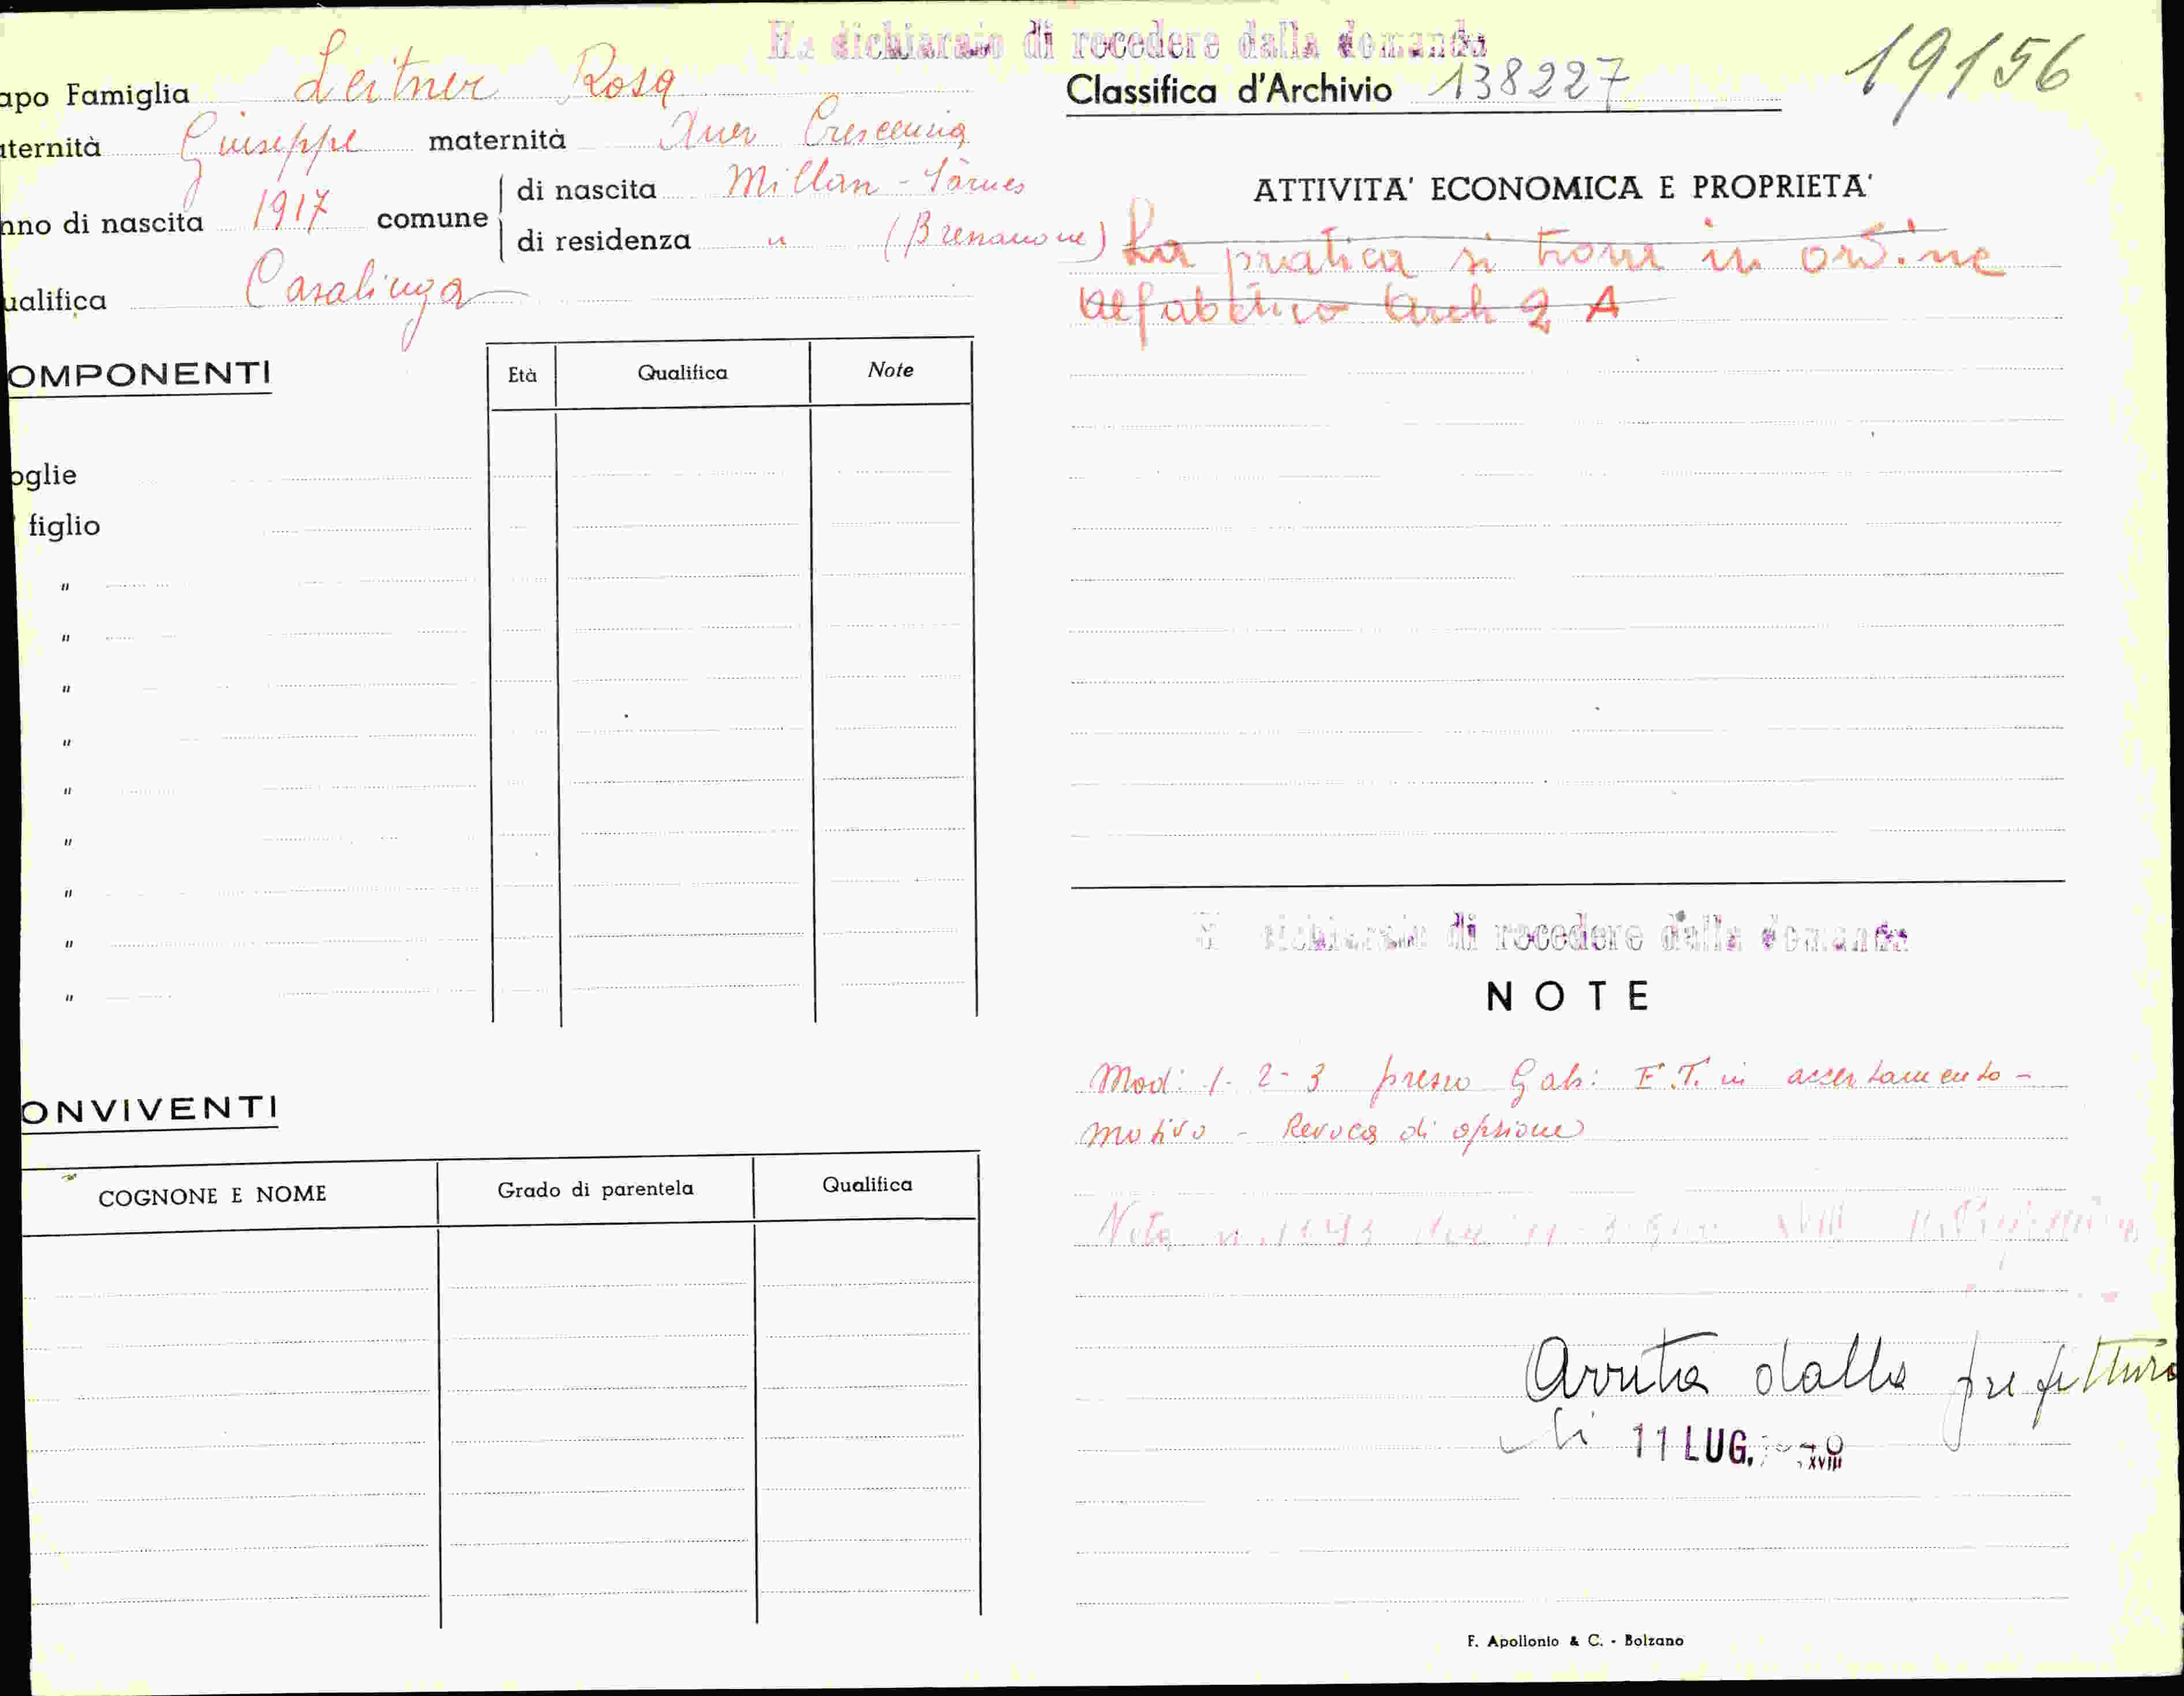 Ha dichiarato di recedere dalla domanda
19156
apo Famiglia Leitner Rosa
Classifica d'Archivio 138227
aternità Giuseppe maternità Auer Crescenzia
nno di nascita 1917 comune di nascita Millan - Sarnes
di residenza " (Bressanone)
ualifica Casalinga
ATTIVITA' ECONOMICA E PROPRIETA'
La pratica si trova in ordine
alfabetico Arch 2 A
OMPONENTI
Età Qualifica Note
oglie
figlio
"
"
"
"
"
"
"
"
"
Ha dichiarato di recedere dalla domanda
NOTE
Mod: 1- 2- 3 presso Gab: E.T. in accertamento -
motivo - Revoca di opzione
Nota n.
Avuta dalla prefettura
li 11 LUG. XVIII
ONVIVENTI
COGNONE E NOME Grado di parentela Qualifica
F. Apollonio & C. - Bolzano